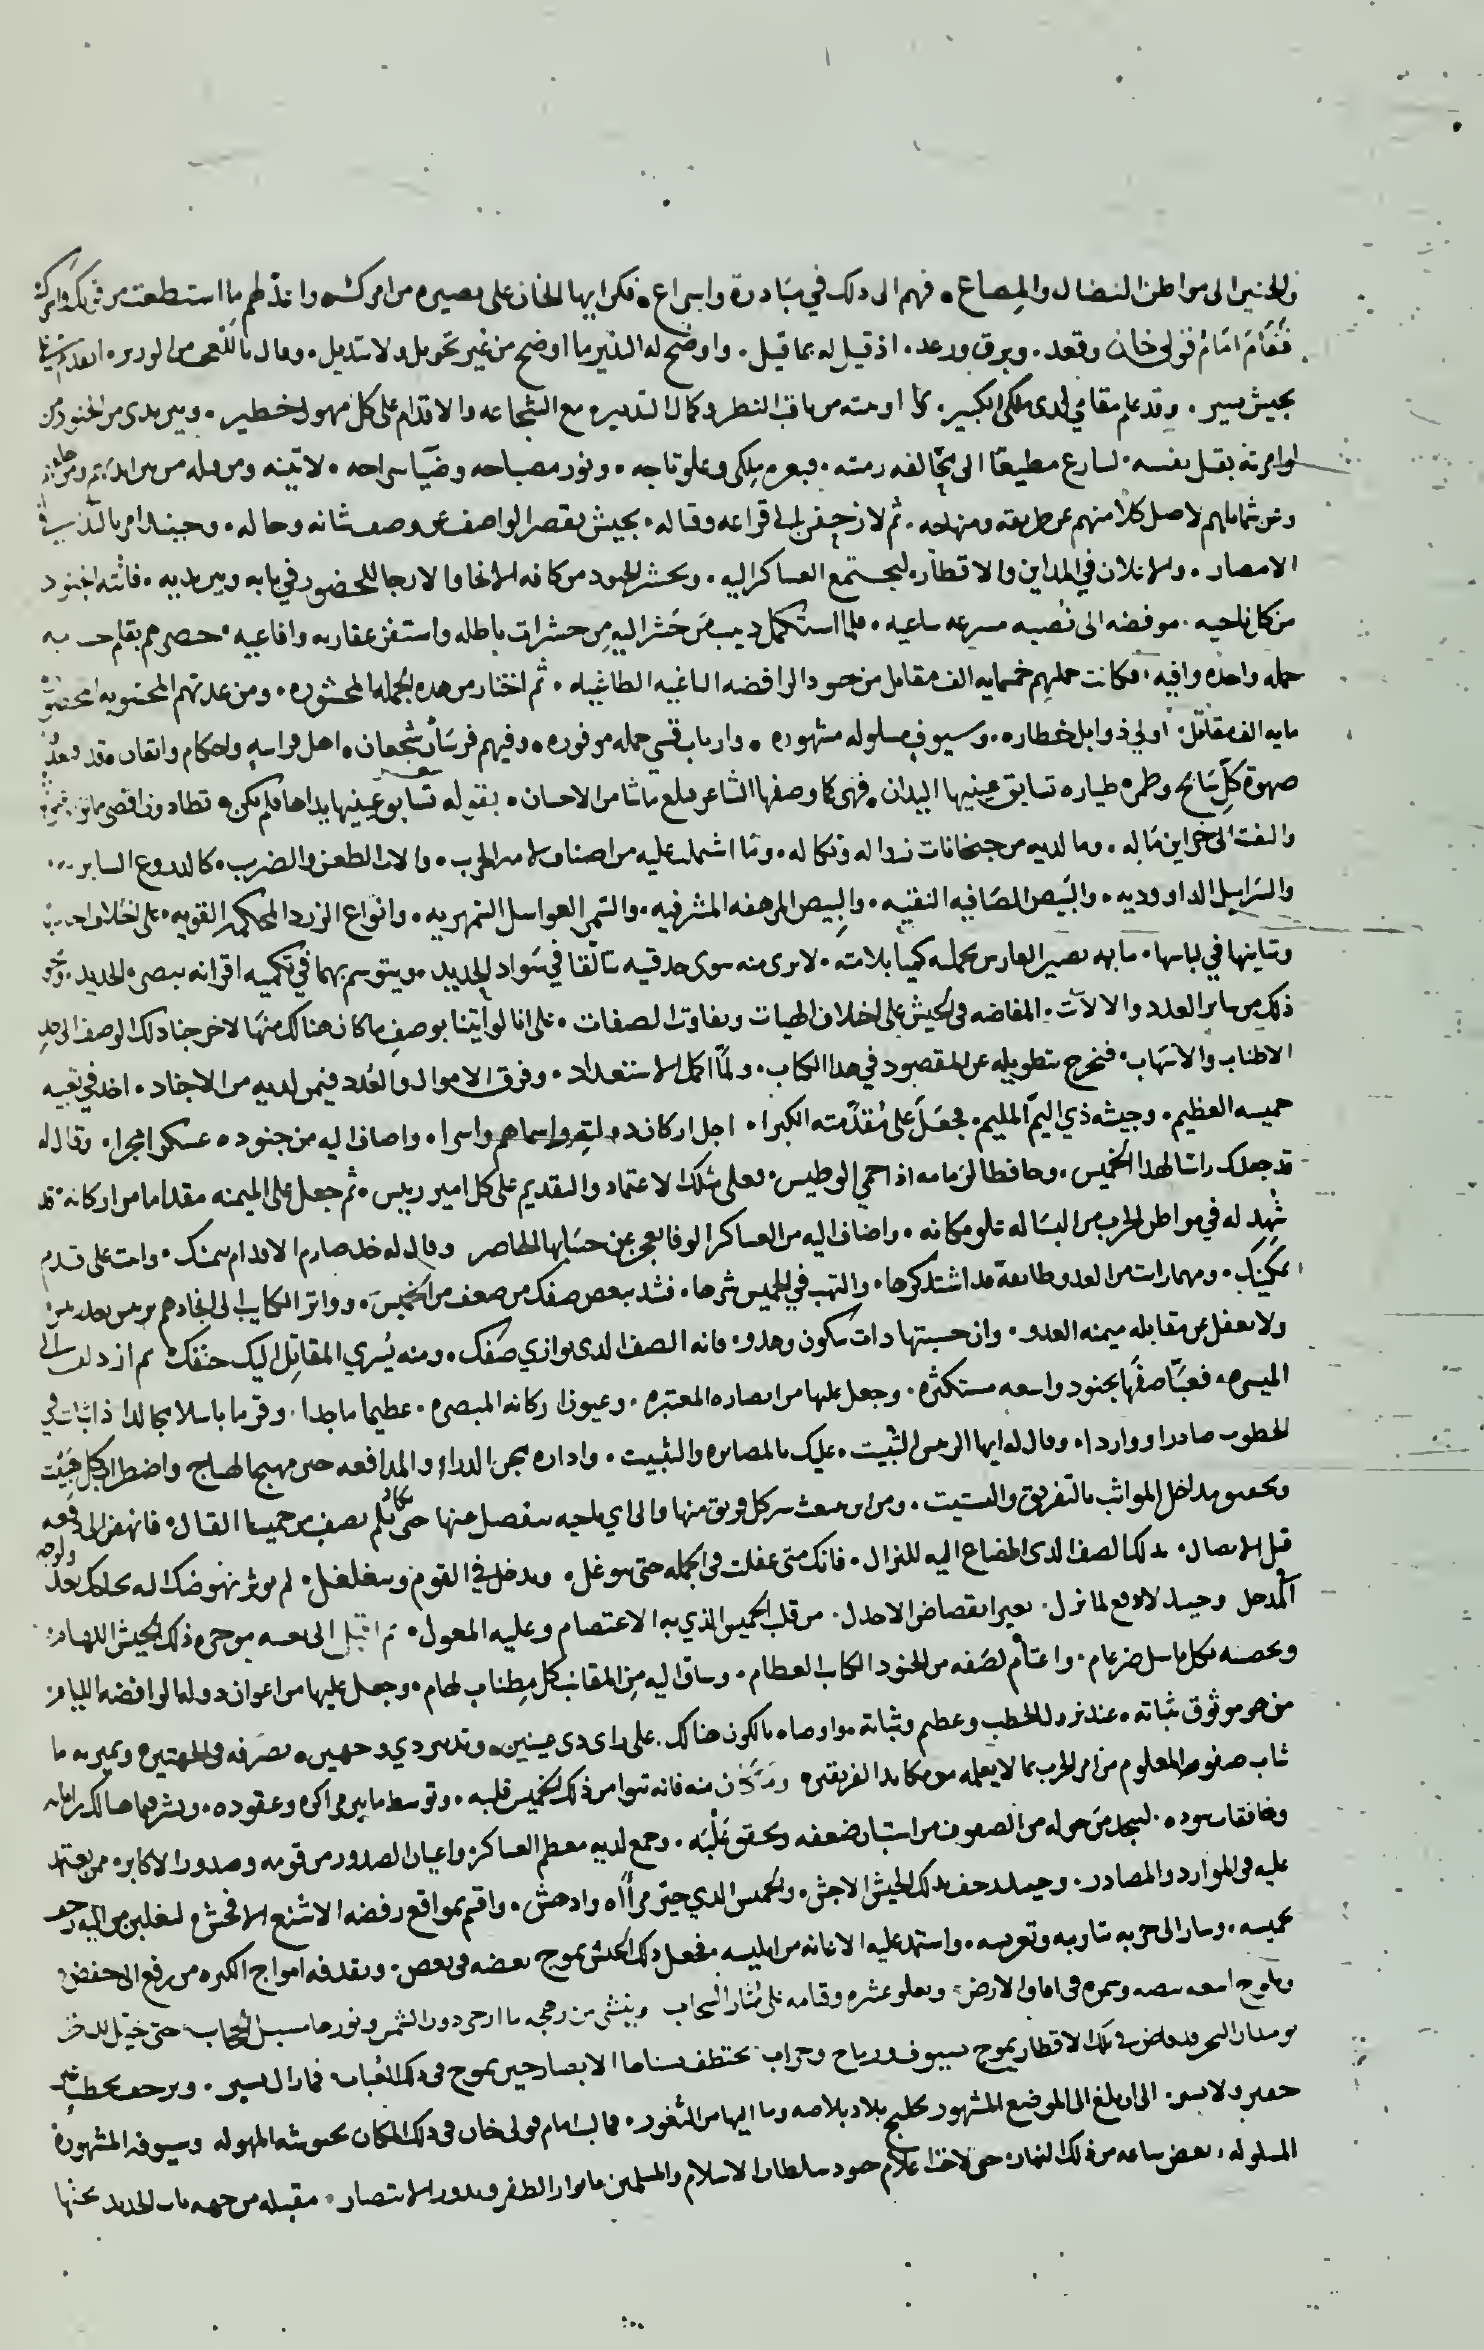 والحنين الى مواطن النضال والمصاع . فهم الى ذلك في مبادرة واسراع . فكن ايها الخان على بصيره من امركشه واتخذ لهم ما استطعت من
فقام امام قولي خان وقعد . وبرق ورعد . اذ قيل له بما قيل . واوضح له النذير ما اوضح من غير تحويل ولا تبديل . وقال
بجيش يسير . وقد علم مقامي لدى ملكي الكبير . بما اوتيته من ثاقب النظر وكمال التدبير مع الشجاعه والاقدام على كل مهول خطير . وبين يدي من الجنود من
لو امرته بقتل نفسه . لسارع مطيعا الى تخالفه رمته . فبعزه ملكي وعلو تاجه . ونور مصباحه وضيا سراجه . لاتينه ومن قبله من بين ايديهم ومن
وعن شمائلهم لاصل كلا منهم عن طريقه ومنهاجه . ثم لازحفن الى قراعه وقتاله . بجيش يقصر الواصف عن وصف شانه وحاله . وحينئذ امر
الامصار . والاعلان في المداين والاقطار . لتجتمع العساكر اليه . وحشر الجنود من كافه الانحا والارجا للحضور في بابه وبين يديه . فاتته الجنود
من كل ناحيه . موفضه الى نصبه مسرعه ساعيه . فلما استكمل دبيب من حشر اليه من حشرات باطله واستفز عقاربه وافاعيه . حصرهم بقلم
جمله واحده وافيه . فكانت جملهم خمسمايه الف مقاتل من جنود الرافضه الباغيه الطاغيه . ثم اختار من هذه الجمله المحشوره . ومن عدتهم المحتويه
مايه الف مقاتل . اولي ذوابل خطاره . وسيوف مسلوله مشهوره . وارباب قسي جمله موفوره . وفيهم فرسان شجعان . اهل فراسه واحكام واتقان .
صهوة كل سابح وطمره طياره تسابق عينيها اليدان . فهي كما وصفها الشاعر فبلغ ما شا من الاحسان . بقوله تسابق عينيها يداها فلم تكن
والتفت الى خزاين ماله . وما لديه من جبخانات نزاله ونكاله . وما اشتملت عليه من اصناف لامه الحرب . والات الطعن والضرب . كالدروع السابريه
والسرابيل الداووديه . والبيض الصافيه النقيه . والبيض المرهفه المشرفيه . والسمر العواسل السمهريه . وانواع الزرد المحكمه القويه . على اختلاف
وتباينها في لباسها . ما به يصير الفارس بحمله كميا بلامته . لا يرى منه سوى حدقيه تالقا في سواد الحديد . ويتوسم بهما في تكميه اقرانه ببصر الحديد .
ذلك من ساير العدد والالات . المفاضه في الجيش على اختلاف الهيات وتفاوت الصفات . على انا لو اتينا بوصف ما كان هنالك منها لاخرجنا ذلك الوصف الى حد
الاطناب والاسهاب . فنخرج بتطويله عن المقصود في هذا الكتاب . ولما اكمل الاستعداد . وفرق الاموال والعدد فيمن لديه من الاجناد . اخذ في تعبيه
خميسه العظيم . وجيشه ذي اليم المليم . فجعل على مقدمته الكبرا . اجل اركان دولته واسماهم واسرا . واضاف اليه من جنوده عسكرا مجرا . وقال له
قد جعلتك راسا لهذا الخميس . وحافظا لزمامه اذا حمي الوطيس . فعلى مثلك الاعتماد والتقديم على كل امير رييس . ثم جعل على الميمنه مقداما من اركانه قد
شهد له في مواطن الحرب من البساله علو مكانه . واضاف اليه من العساكر الوفا يعجز عن حسابها الحاصر وقال له خذ صارم الاقدام بيمينك . واثبت على قدم
تمكينك . ومهما رايت من العدو طايفة قد اشتد كرها . والتهب في الخميس شرها . فشد ببعض صفك من ضعف من الخميس . وواتر الكتايب الى انجادهم
ولا تغفل عن مقابله ميمنه العدو . وان حسبتها ذات سكون وهدو . فانه الصف الذي يوازي صفك . ومنه يسري المقاتل اليك حتفك ثم ازدلف الى
الميسره . فعبا صفها بجنود واسعه مستكثره . وجعل عليها من انصاره المعتبره . وعيون اركانه المبصره . عظيما ماجدا . وقرما باسلا مجالدا ذا ثبات في
الخطوب صادرا وواردا . وقال له ايها الرييس الثبيت . عليك بالمصابره والتثبيت . واداره مجن الدراء والمدافعه حين مهيج الهياج واضطراب
وتحصين مداخل المواثب بالتفريق والتشتيت . ومن اين ينبعث سير كل فريق منها والى اي ناحيه ينفصل منها حتى
قبل الاتصال . بذلك الصف الذي انصاع اليه للنزال . فانك متى غفلت في الجمله حتى يتوغل . ويدخل في القوم ويتغلغل . لم يوثر نهوضك اليه بحملتك بعد
المدخل وحينئذ لا دفع لما نزل . بغير انقضاض الاجدل . من قلب الخميس الذي به الاعتصام وعليه المعول . ثم اقبل الى نفسه من حوى ذلك الجيش اللهام
وتحصنه بكل باسل ضرغام . واعتام لصفه من الجنود الكتايب العظام . وساق اليه من المقانب كل مطناب لهام . وجعل عليها من اعوان دوله الرافضه
من هو موثوق بثباته . عند نزول الخطب وعظيم وثباته . واوصاه بالكون هنالك . على راي ذي عينين . وتدبير ذي وجهين . تصرفه في الجهتين وتميز به ما
شاب صفوه المعلوم من امر الحرب بما لا يعلمه من مكايد الفريقين منه فانه تبوا من ذلك الخميس قلبه . وتوسط ما بين مراكزه وعقوده .
وخافقات بنوده . لينجد من حوله من الصفوف من استبان ضعفه وتحقق غلبه . وجمع لديه معظم العساكر واعيان الصدور من قومه وصدور الاكابر . ممن يعتمد
عليه في الموارد والمصادر . وحينئذ زحف بذلك الجيش الاجش . والخميس الذي حير مراه وادهش . واقسم بمواقع رفضه الاشنع الافحش . ليغلبن من اليه زحف
بخميسه . وسار الى حربه بتاويبه وتعريسه . واستمد عليه الاعانه من ابليسه فجعل ذلك الجيش يموج بعضه في بعض . وتقذفه امواج الكبره من رفع الى خفض
ويلوح اسعه بيضه وسمره في افاق الارض . ويعلو عثيره وقتامه على مثار السحاب وينشي من رهجه ما ارجى دون الشمس ونورها مسبل الحجاب حتى خيل
في تلك الاقطار يموج بسيوف ورماح وحراب . تختطف بسناها الابصار حين يموج في ذلك العباب فما زال يسير . ويزحف
حقير ولا يسير . الى ان بلغ الى الموضع المشهور بخليج بلاد بلاصه وما اليها من الثغور . فما لبث امام قولي خان في ذلك المكان بجيوشه المهوله وسيوفه المشهوره
المسلوله . بعض ساعه من ذلك النهار . حتى لاحت اعلام جنود سلطان الاسلام والمسلمين بانوار الظفر وبدور الانتصار . مقبله من جهه باب الحديد تحثها